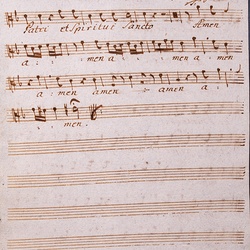 Patri et Spiritui Sancto Amen
a men a men a men
a men amen amen a
men.